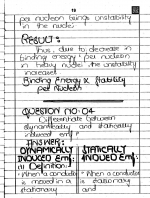 19
per nucleon brings unstability
in the nuclei
RESULT:
Thus, due to decrease in
binding energy per nucleon
in heavy nuclei the unstability
increases
Binding Energy ∝ Stability
per Nucleon
QUESTION NO: 04
Differentiate between
dynamically and statically
induced emf?
ANSWER:
DYNAMICALLY STATICALLY
INDUCED Emf: INDUCED Emf:
Definition:
When a conductor When a conductor
is moved in a is stationary
stationary and